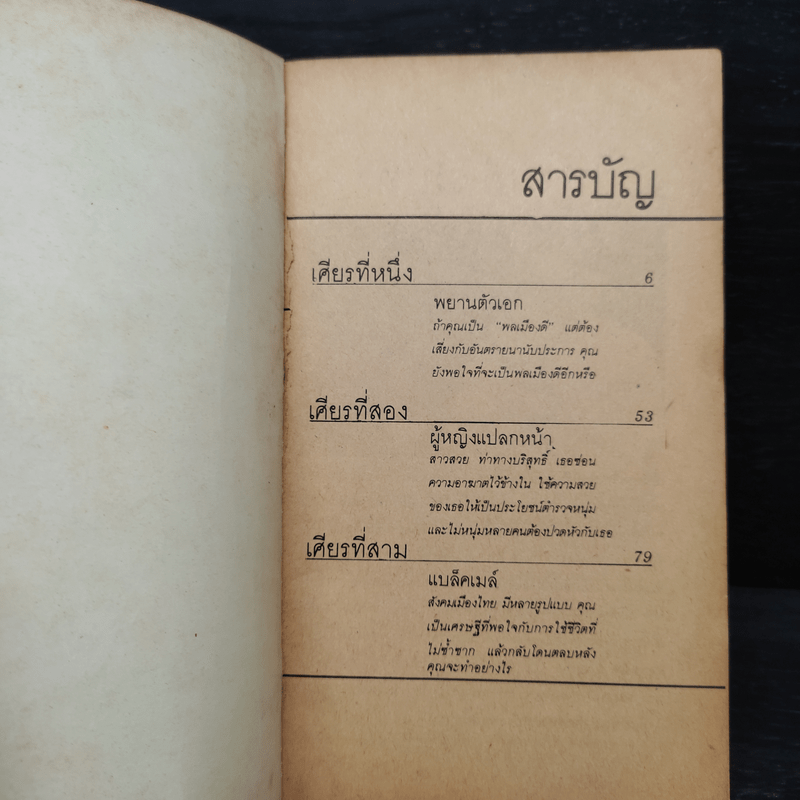 สารบัญ
เศียรที่หนึ่ง 6
พยานตัวเอก
ถ้าคุณเป็น "พลเมืองดี" แต่ต้อง
เสี่ยงกับอันตรายนานับประการ คุณ
ยังพอใจที่จะเป็นพลเมืองดีอีกหรือ
เศียรที่สอง 53
ผู้หญิงแปลกหน้า
สาวสวย ท่าทางบริสุทธิ์ เธอซ่อน
ความอาฆาตไว้ข้างใน ใช้ความสวย
ของเธอให้เป็นประโยชน์ตำรวจหนุ่ม
และไม่หนุ่มหลายคนต้องปวดหัวกับเธอ
เศียรที่สาม 79
แบล็คเมล์
สังคมเมืองไทย มีหลายรูปแบบ คุณ
เป็นเศรษฐีที่พอใจกับการใช้ชีวิตที่
ไม่ซ้ำซาก แล้วกลับโดนตลบหลัง
คุณจะทำอย่างไร